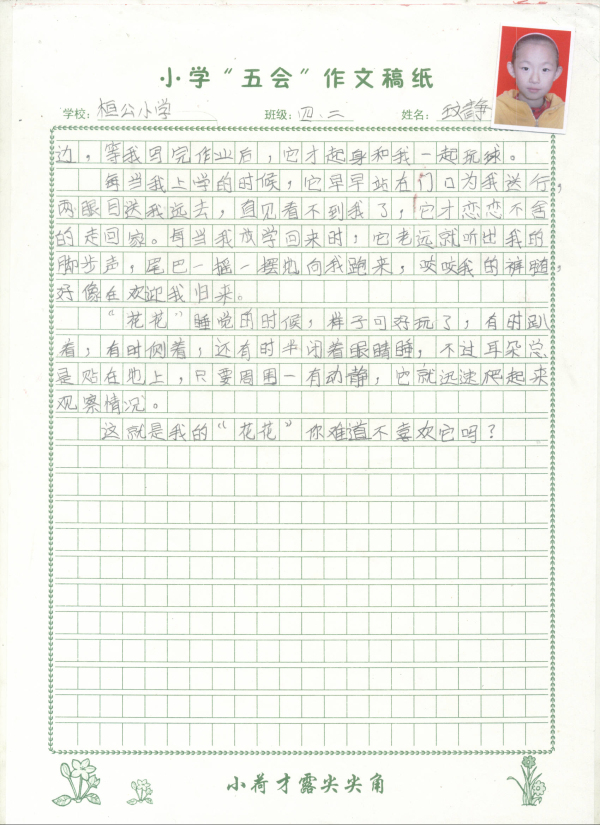 小学“五会”作文稿纸
学校：桓公小学 班级：四.二 姓名：王文静
边，等我写完作业后，它才起身和我一起玩球。
每当我上学的时候，它早早站在门口为我送行，
两眼目送我远去，直见看不到我了，它才恋恋不舍
的走回家。每当我放学回来时，它老远就听出我的
脚步声，尾巴一摇一摆地向我跑来，咬咬我的裤腿，
好像在欢迎我归来。
“花花”睡觉的时候，样子可好玩了，有时趴
着，有时侧着，还有时半闭着眼睛睡，不过耳朵总
是贴在地上，只要周围一有动静，它就迅速爬起来
观察情况。
这就是我的“花花”你难道不喜欢它吗？
小荷才露尖尖角